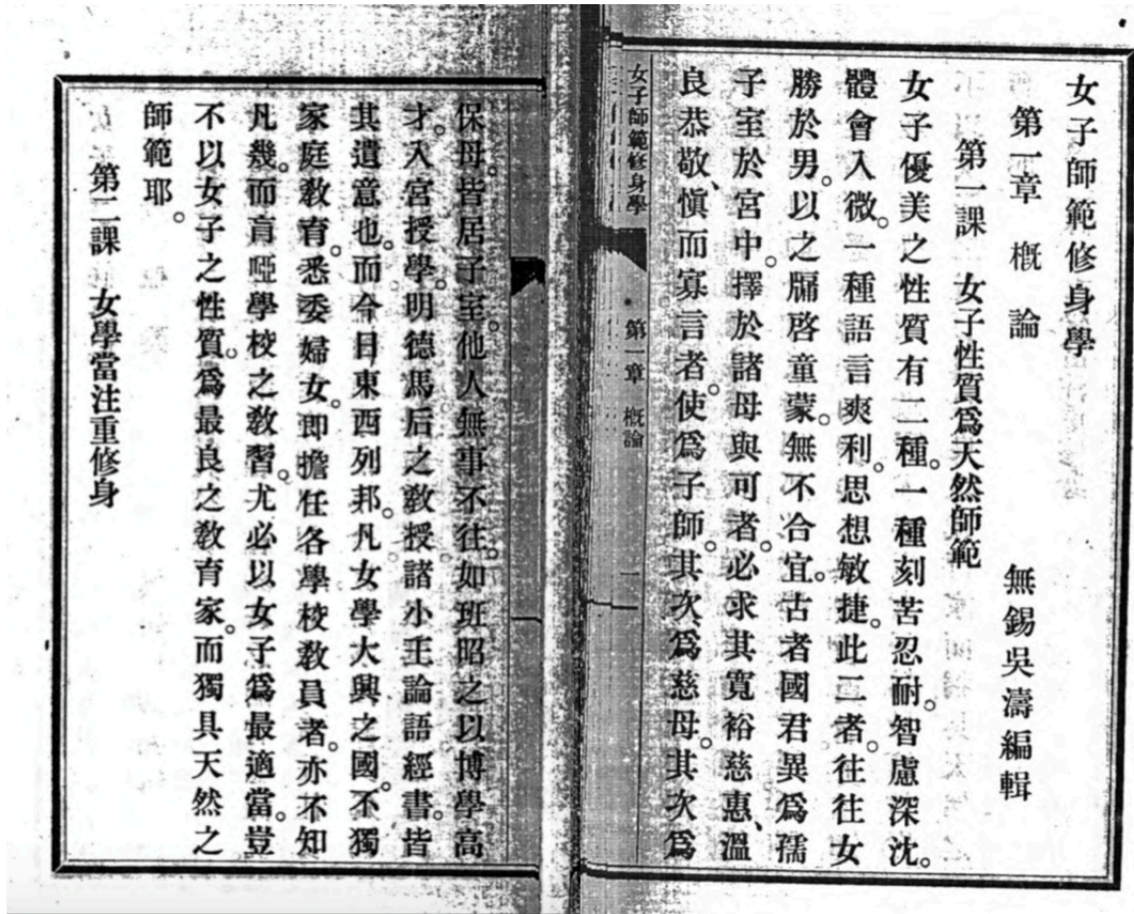 女子師範修身學
第一章 概論 無錫吳濤編輯
第一課 女子性質爲天然師範
女子優美之性質有二種。一種刻苦忍耐。智慮深沈。
體會入微。一種語言爽利。思想敏捷。此二者。往往女
勝於男。以之牖啓童蒙。無不合宜。古者國君異爲孺
子室於宮中。擇於諸母與可者。必求其寬裕慈惠、溫
良恭敬、愼而寡言者。使爲子師。其次、爲慈母。其次爲
女子師範修身學 第一章 概論 一
保母。皆居子室。他人無事不往。如班昭之以博學高
才。入宮授學。明德馬后之敎授諸小王論語經書。皆
其遺意也。而今日東西列邦。凡女學大興之國。不獨
家庭敎育。悉委婦女。卽擔任各學校敎員者。亦不知
凡幾。而盲啞學校之敎習。尤必以女子爲最適當。豈
不以女子之性質。爲最良之敎育家。而獨具天然之
師範耶。
第二課 女學當注重修身